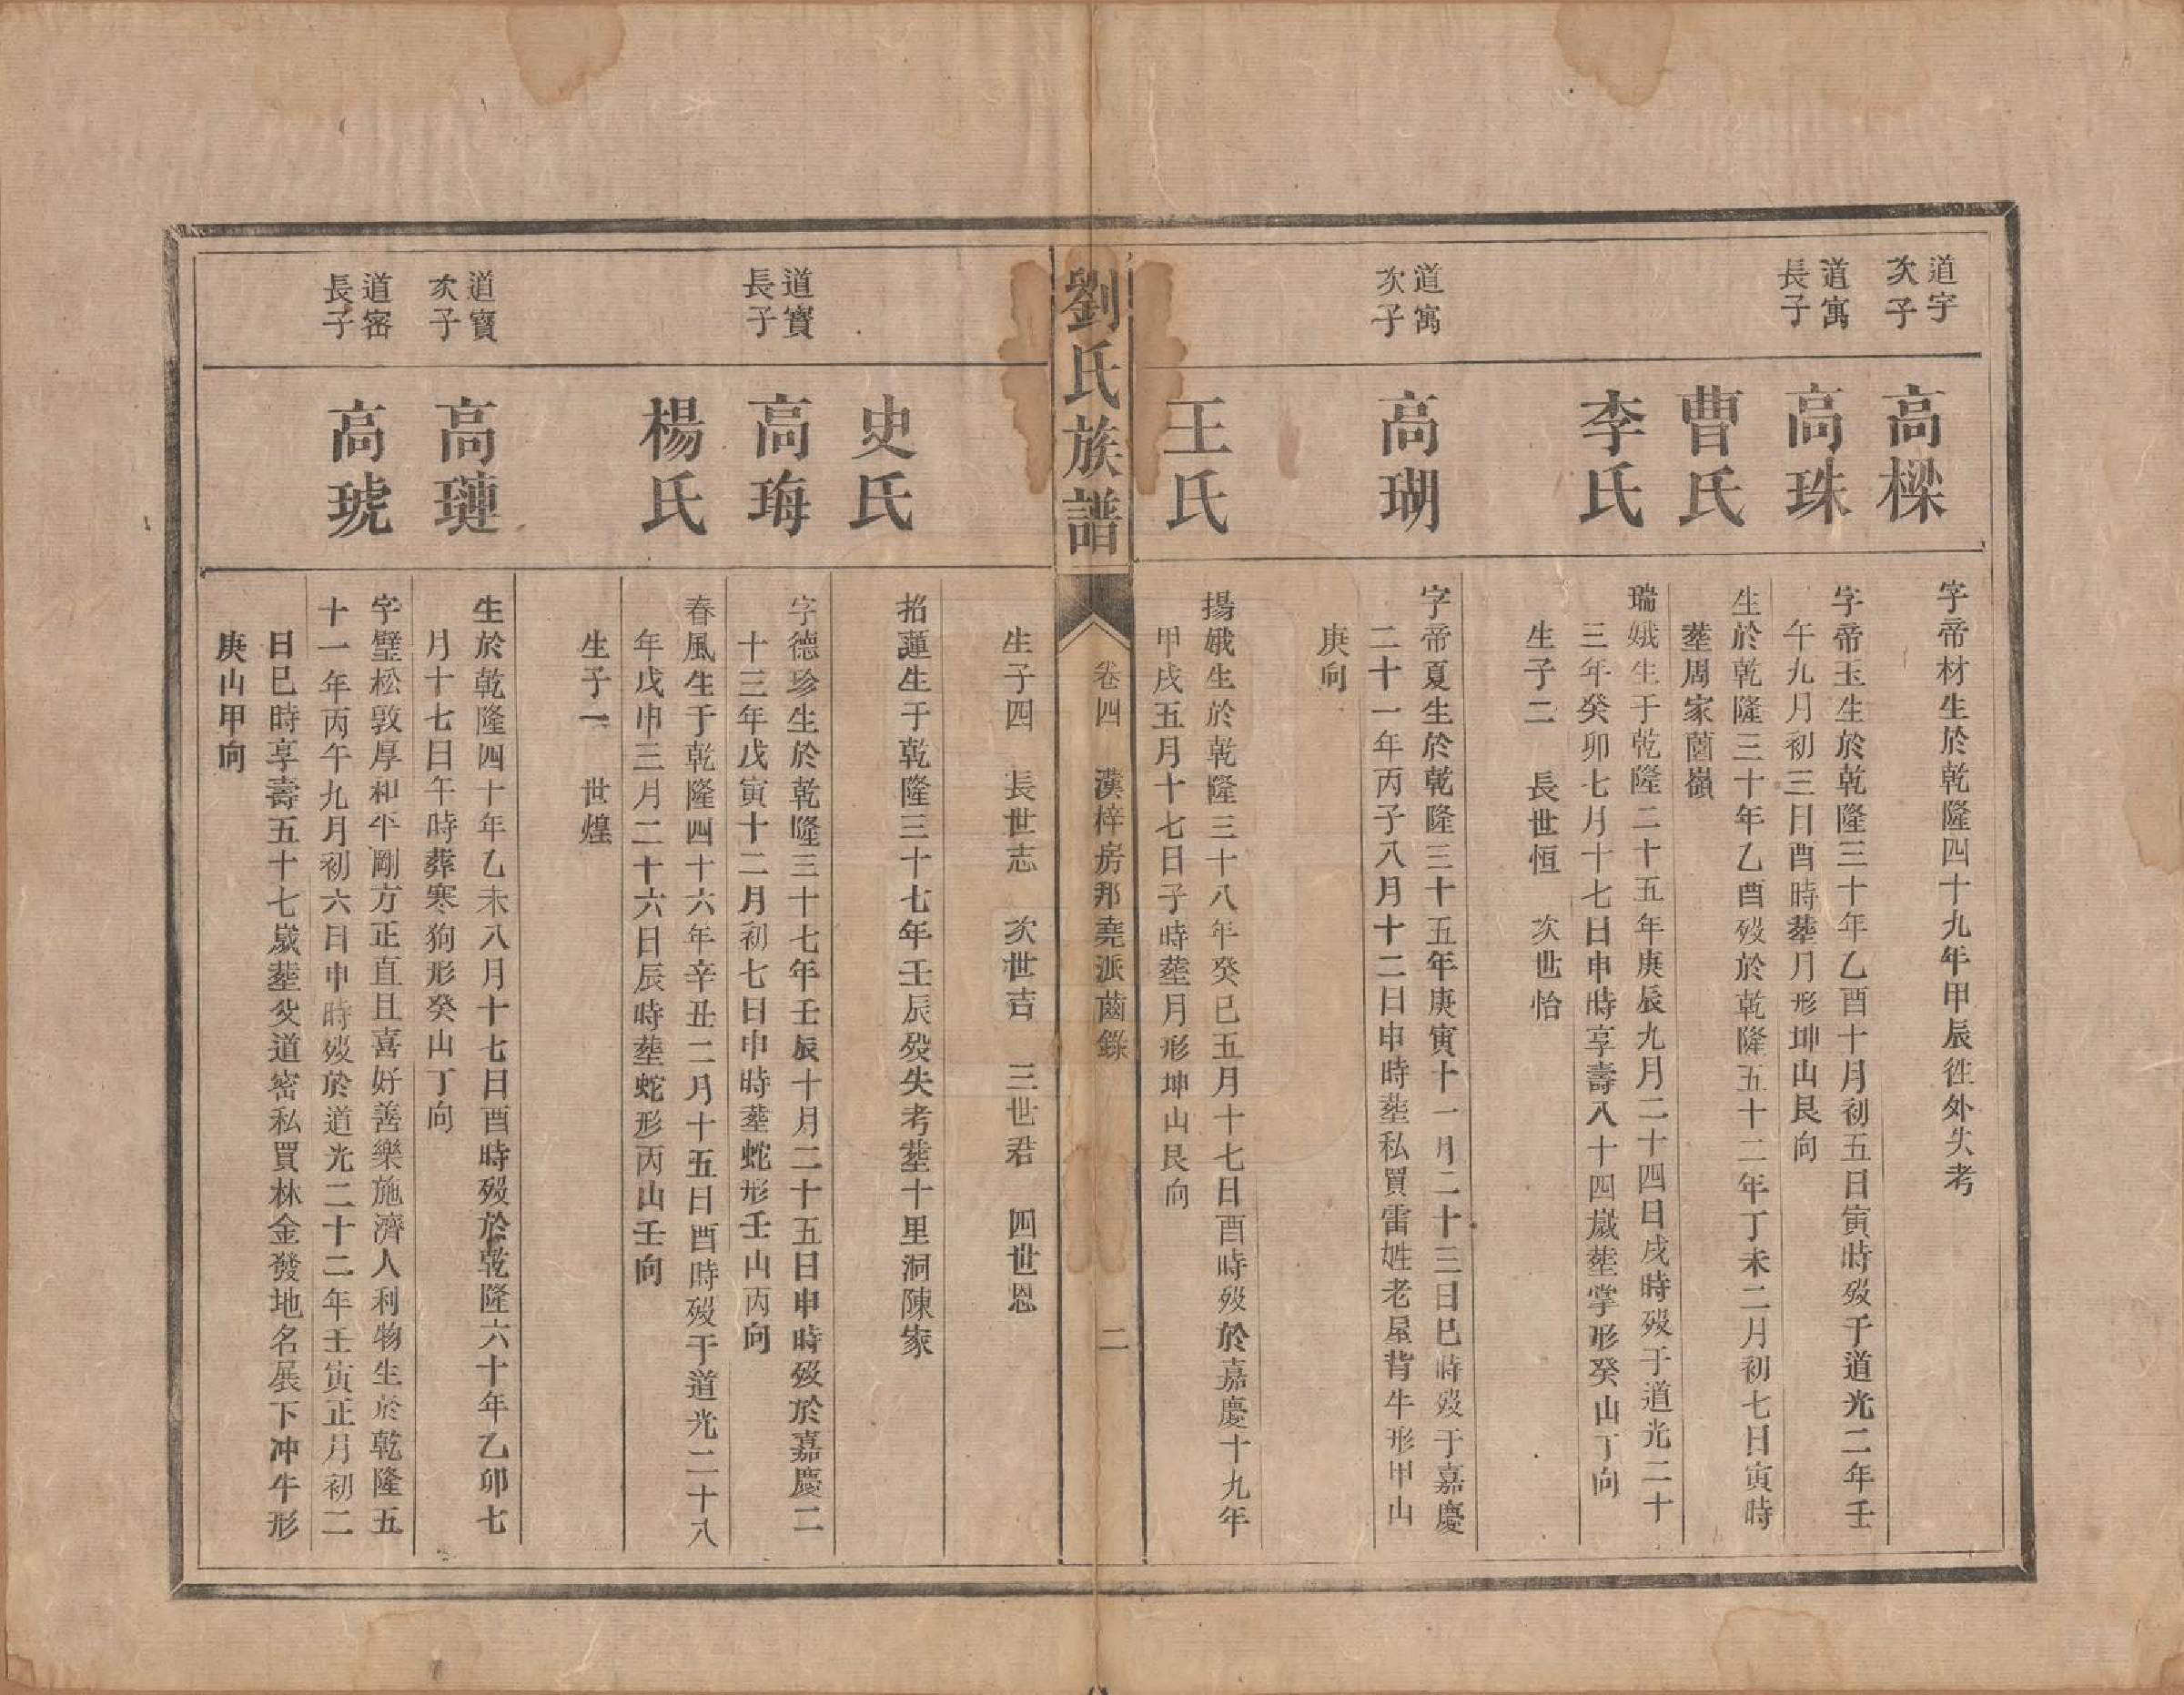 道宇
次子
高樑
字帝材生於乾隆四十九年甲辰徃外失考
道寓
長子
高珠
字帝玉生於乾隆三十年乙酉十月初五日寅時歿于道光二年壬
午九月初三日酉時塟月形坤山艮向
曹氏
生於乾隆三十年乙酉歿於乾隆五十二年丁未二月初七日寅時
塟周家薗嶺
李氏
瑞娥生于乾隆二十五年庚辰九月二十四日戌時歿于道光二十
三年癸卯七月十七日申時享壽八十四歲塟掌形癸山丁向
生子二 長世恒 次世怡
道寓
次子
高瑚
字帝夏生於乾隆三十五年庚寅十一月二十三日巳時歿于嘉慶
二十一年丙子八月十二日申時塟私買雷姓老屋背牛形甲山
庚向
王氏
揚娥生於乾隆三十八年癸巳五月十七日酉時歿於嘉慶十九年
甲戌五月十七日子時塟月形坤山艮向
劉氏族譜
卷四 漢梓房那堯派齒錄
二
生子四 長世志 次世吉 三世君 四世恩
史氏
招蓮生于乾隆三十七年壬辰歿失考塟十里洞陳家
道寳
長子
高珻
字德珍生於乾隆三十七年壬辰十月二十五日申時歿於嘉慶二
十三年戊寅十二月初七日申時塟蛇形壬山丙向
楊氏
春風生于乾隆四十六年辛丑二月十五日酉時歿于道光二十八
年戊申三月二十六日辰時塟蛇形丙山壬向
生子一 世煌
道寳
次子
高璉
生於乾隆四十年乙未八月十七日酉時歿於乾隆六十年乙卯七
月十七日午時葬寒狗形癸山丁向
道密
長子
高琥
字璧松敦厚和平剛方正直且喜好善樂施濟人利物生於乾隆五
十一年丙午九月初六日申時歿於道光二十二年壬寅正月初二
日巳時享壽五十七歲塟父道密私買林金發地名展下冲牛形
庚山甲向